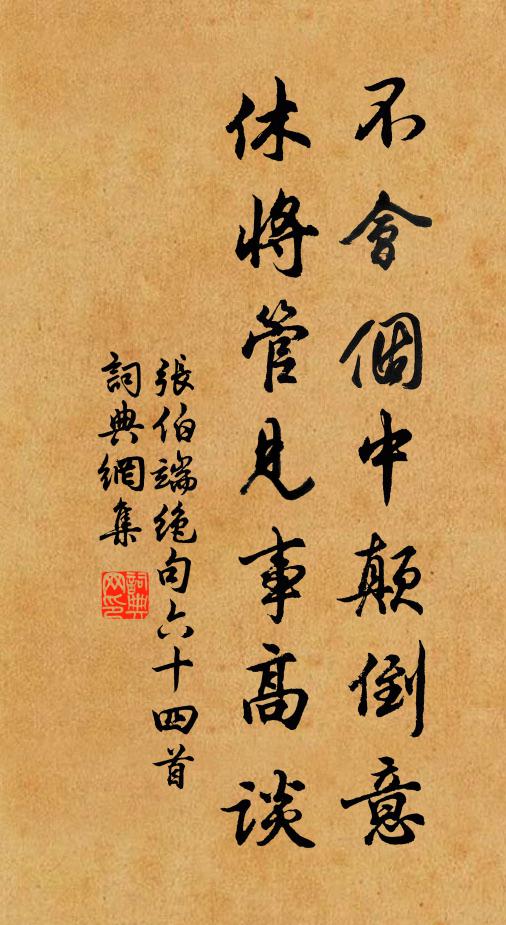 不會個中顛倒意
休將管見事高談
張伯端絕句六十四首
詞典網集
詞典
网印